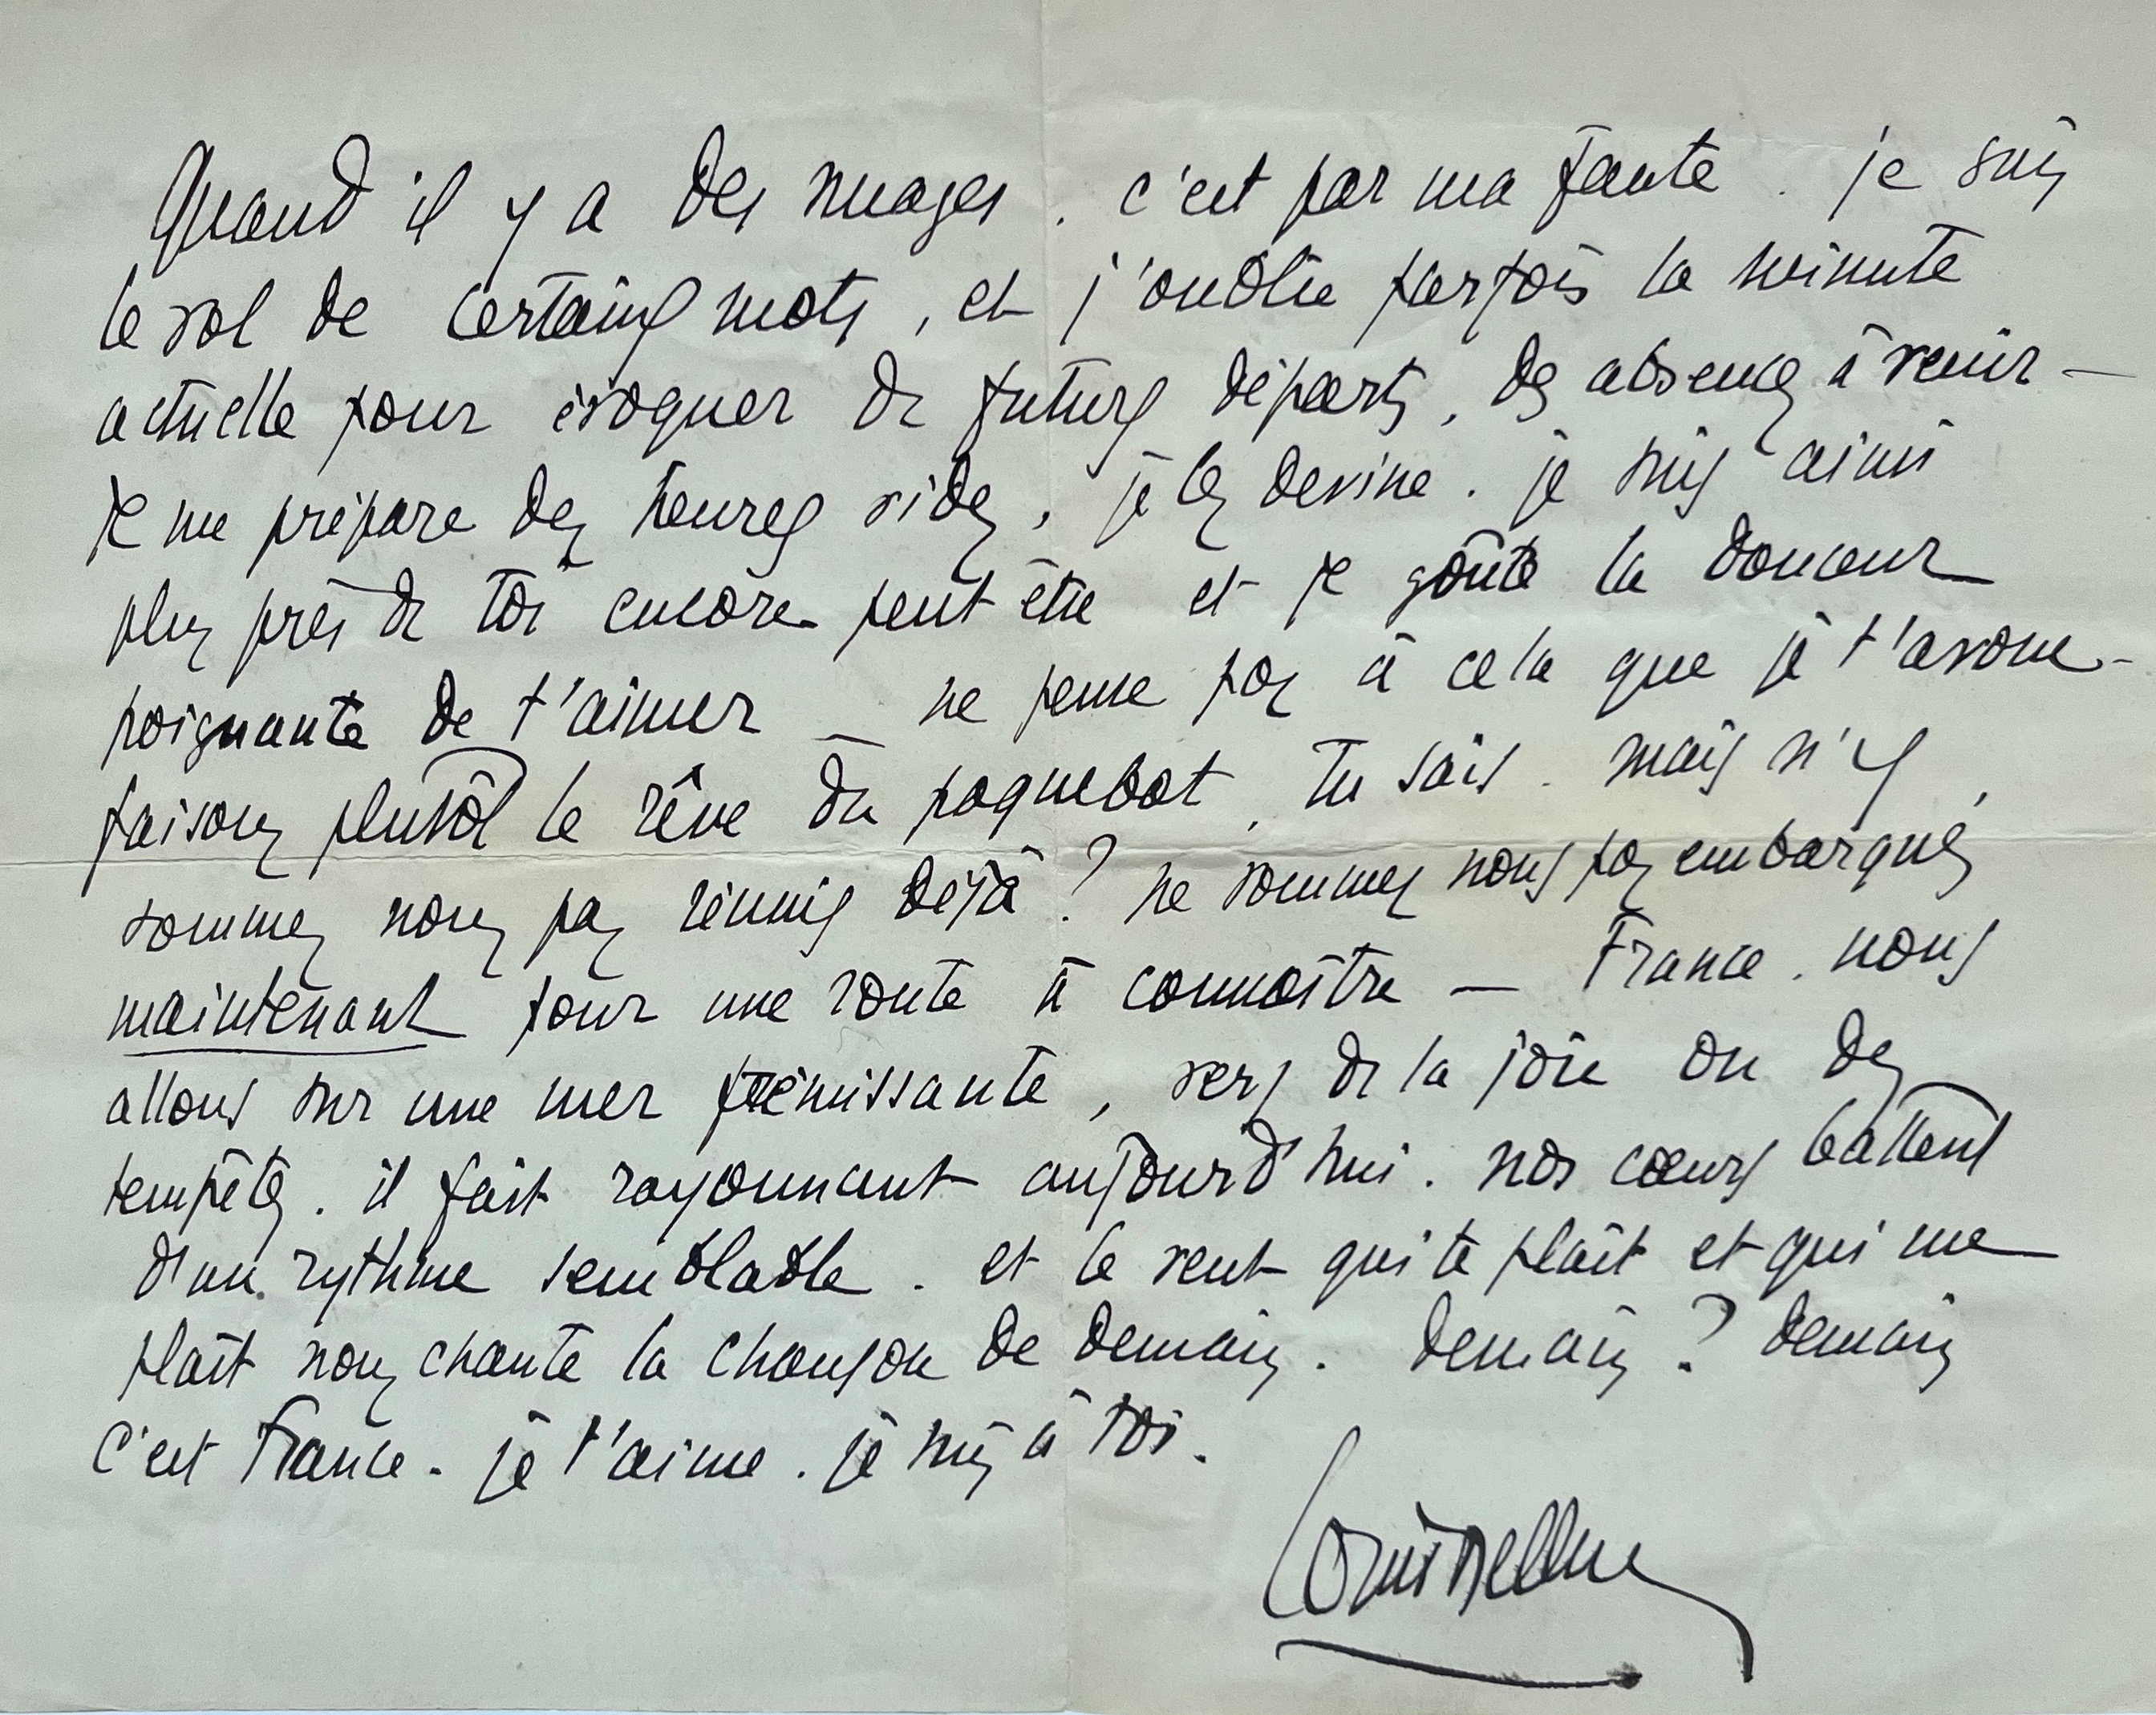 Quand il y a des nuages. c'est par ma faute. je suis
le vol de certains mots, et j'oublie parfois la minute
actuelle pour évoquer de futurs départs, des absences à venir —
je me prépare des heures vides, je les devine. je suis ainsi
plus près de toi encore peut être et je goûte la douceur
poignante de t'aimer — ne pense pas à cela que je t'avoue —
faisons plutôt le rêve du paquebot, tu sais. mais n'y
sommes nous pas réunis déjà ? ne sommes nous pas embarqués
maintenant pour une route à connaître — France. nous
allons sur une mer frémissante, vers de la joie ou des
tempêtes. il fait rayonnant aujourd'hui. nos cœurs battent
d'un rythme semblable. et le vent qui te plaît et qui me
plaît nous chante la chanson de demain. demain ? demain
c'est France. je t'aime. je suis à toi.